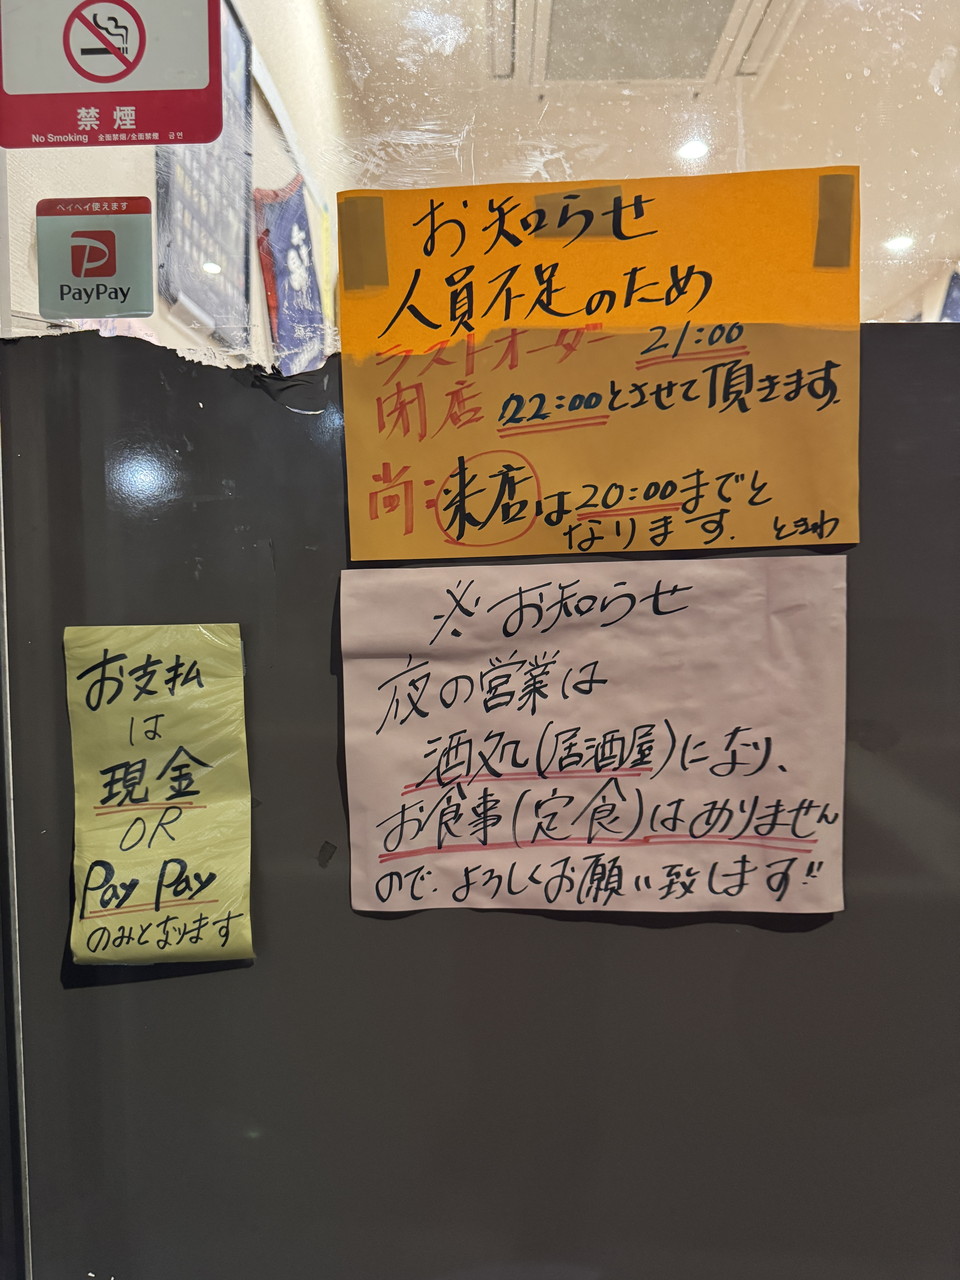 禁煙
No Smoking 全面禁煙/全面禁煙 금연
ペイペイ使えます
PayPay
お知らせ
人員不足のため
ラストオーダー 21:00
閉店 22:00とさせて頂きます。
尚:来店は20:00までと
なります。 ときわ
※お知らせ
夜の営業は
酒処(居酒屋)になり、
お食事(定食)はありません
ので、よろしくお願い致します!!
お支払
は
現金
OR
Pay Pay
のみとなります